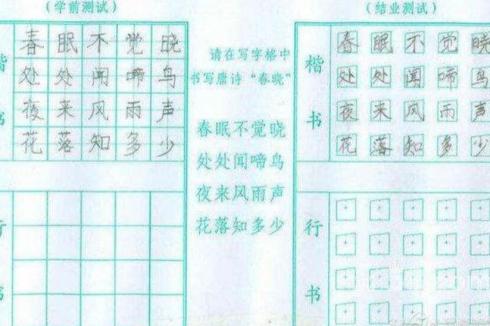 (学前测试)
春眠不觉晓
处处闻啼鸟
夜来风雨声
花落知多少
楷书
行书
请在写字格中
书写唐诗“春晓”
春眠不觉晓
处处闻啼鸟
夜来风雨声
花落知多少
(结业测试)
楷书
春眠不觉晓
处处闻啼鸟
夜来风雨声
花落知多少
行书